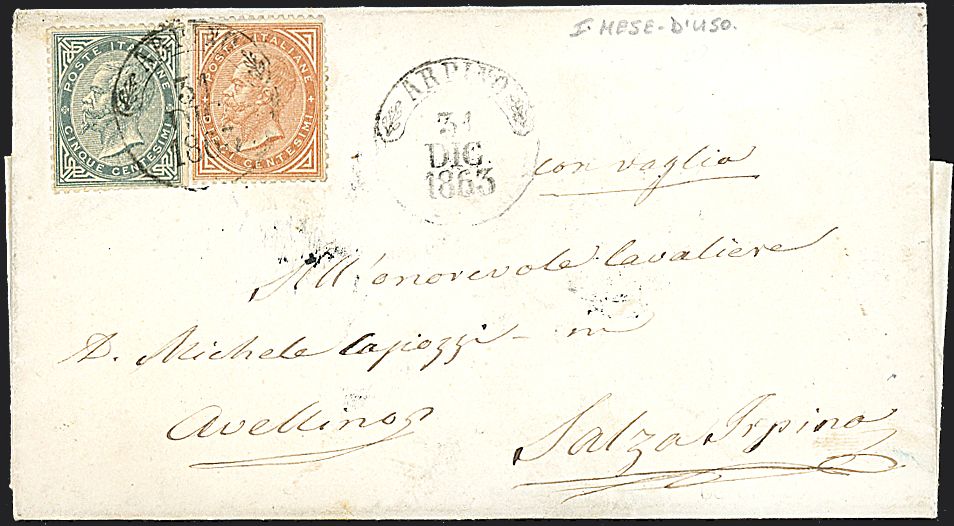 I° MESE-D'USO.
POSTE ITALIANE
CINQUE CENTESIMI
POSTE ITALIANE
CENTESIMI
ARPINO
31
186
ARPINO
31
DIC.
1863
con vaglia
All'onorevole Cavaliere
D. Michele Capozzi - in
Avellino
Salza Irpina